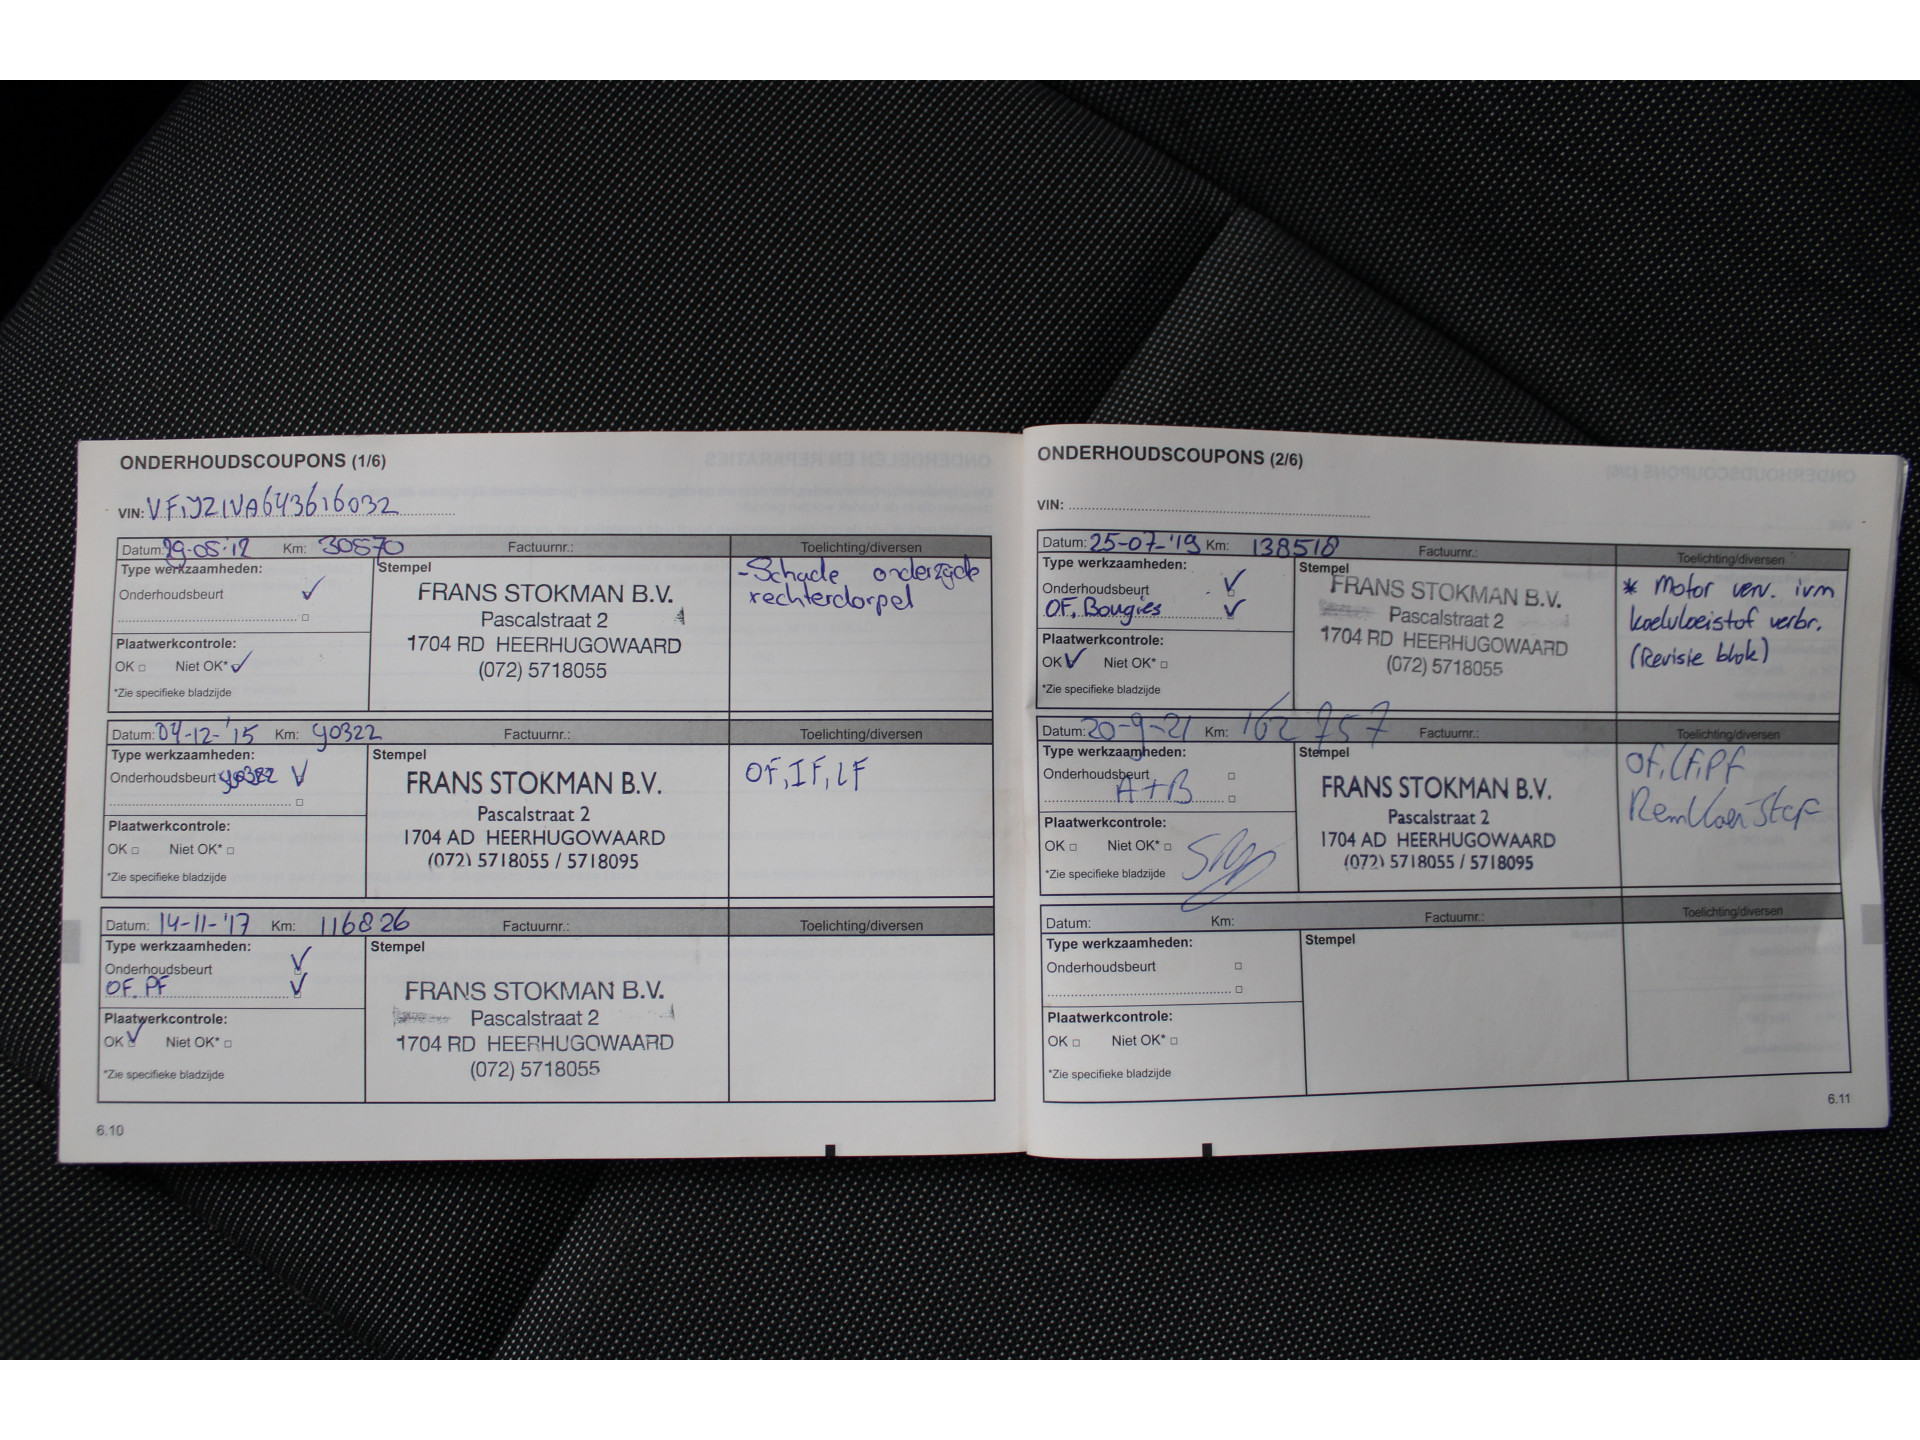 ONDERHOUDSCOUPONS (1/6)
VIN: VF1JZ1VA643616032
Datum: 29-05-'12 Km: 30570 Factuurnr.: Toelichting/diversen
Type werkzaamheden:
Onderhoudsbeurt ✓
Plaatwerkcontrole:
OK □ Niet OK* ✓
*Zie specifieke bladzijde
Stempel
FRANS STOKMAN B.V.
Pascalstraat 2
1704 RD HEERHUGOWAARD
(072) 5718055
- Schade onderzijde
rechterdorpel
Datum: 04-12-'15 Km: 90322 Factuurnr.: Toelichting/diversen
Type werkzaamheden:
Onderhoudsbeurt 90322 ✓
Plaatwerkcontrole:
OK □ Niet OK* □
*Zie specifieke bladzijde
Stempel
FRANS STOKMAN B.V.
Pascalstraat 2
1704 AD HEERHUGOWAARD
(072) 5718055 / 5718095
OF, IF, LF
Datum: 14-11-'17 Km: 116826 Factuurnr.: Toelichting/diversen
Type werkzaamheden:
Onderhoudsbeurt ✓
OF. PF ✓
Plaatwerkcontrole:
OK ✓ Niet OK* □
*Zie specifieke bladzijde
Stempel
FRANS STOKMAN B.V.
Pascalstraat 2
1704 RD HEERHUGOWAARD
(072) 5718055
6.10
ONDERHOUDSCOUPONS (2/6)
VIN:
Datum: 25-07-'19 Km: 138518 Factuurnr.: Toelichting/diversen
Type werkzaamheden:
Onderhoudsbeurt ✓
OF, Bougies ✓
Plaatwerkcontrole:
OK ✓ Niet OK* □
*Zie specifieke bladzijde
Stempel
FRANS STOKMAN B.V.
Pascalstraat 2
1704 RD HEERHUGOWAARD
(072) 5718055
* Motor verv. ivm
koelvloeistof verbr.
(Revisie blok)
Datum: 20-9-21 Km: 162757 Factuurnr.: Toelichting/diversen
Type werkzaamheden:
Onderhoudsbeurt □
A+B □
Plaatwerkcontrole:
OK □ Niet OK* □
*Zie specifieke bladzijde
Stempel
FRANS STOKMAN B.V.
Pascalstraat 2
1704 AD HEERHUGOWAARD
(072) 5718055 / 5718095
OF, LF, PF
Datum: Km: Factuurnr.: Toelichting/diversen
Type werkzaamheden:
Onderhoudsbeurt □
Plaatwerkcontrole:
OK □ Niet OK* □
*Zie specifieke bladzijde
Stempel
6.11